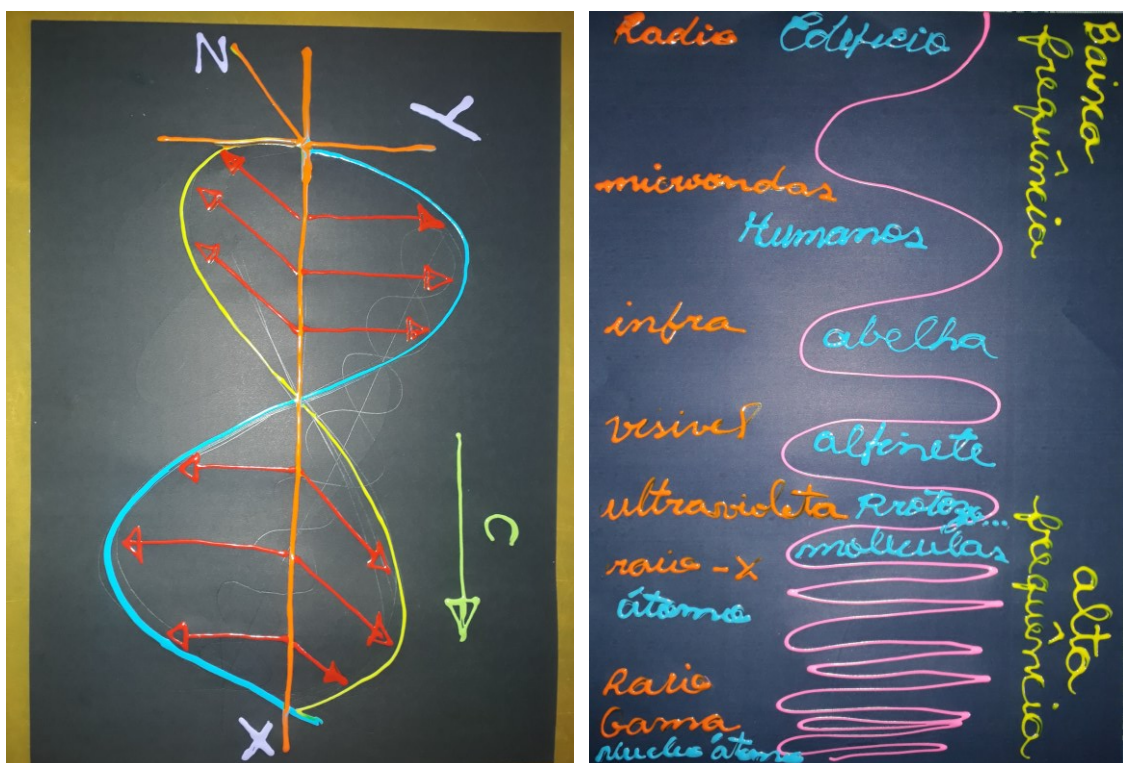 Z
Y
C
X
Radio Edeficio
microondas
Humanos
infra
abelha
vesivel
alfinete
ultravioleta Protozo...
moleculas
raio-x
átomo
Raio
Gama
Nucleo átomo
Baixa
frequência
alta
frequência